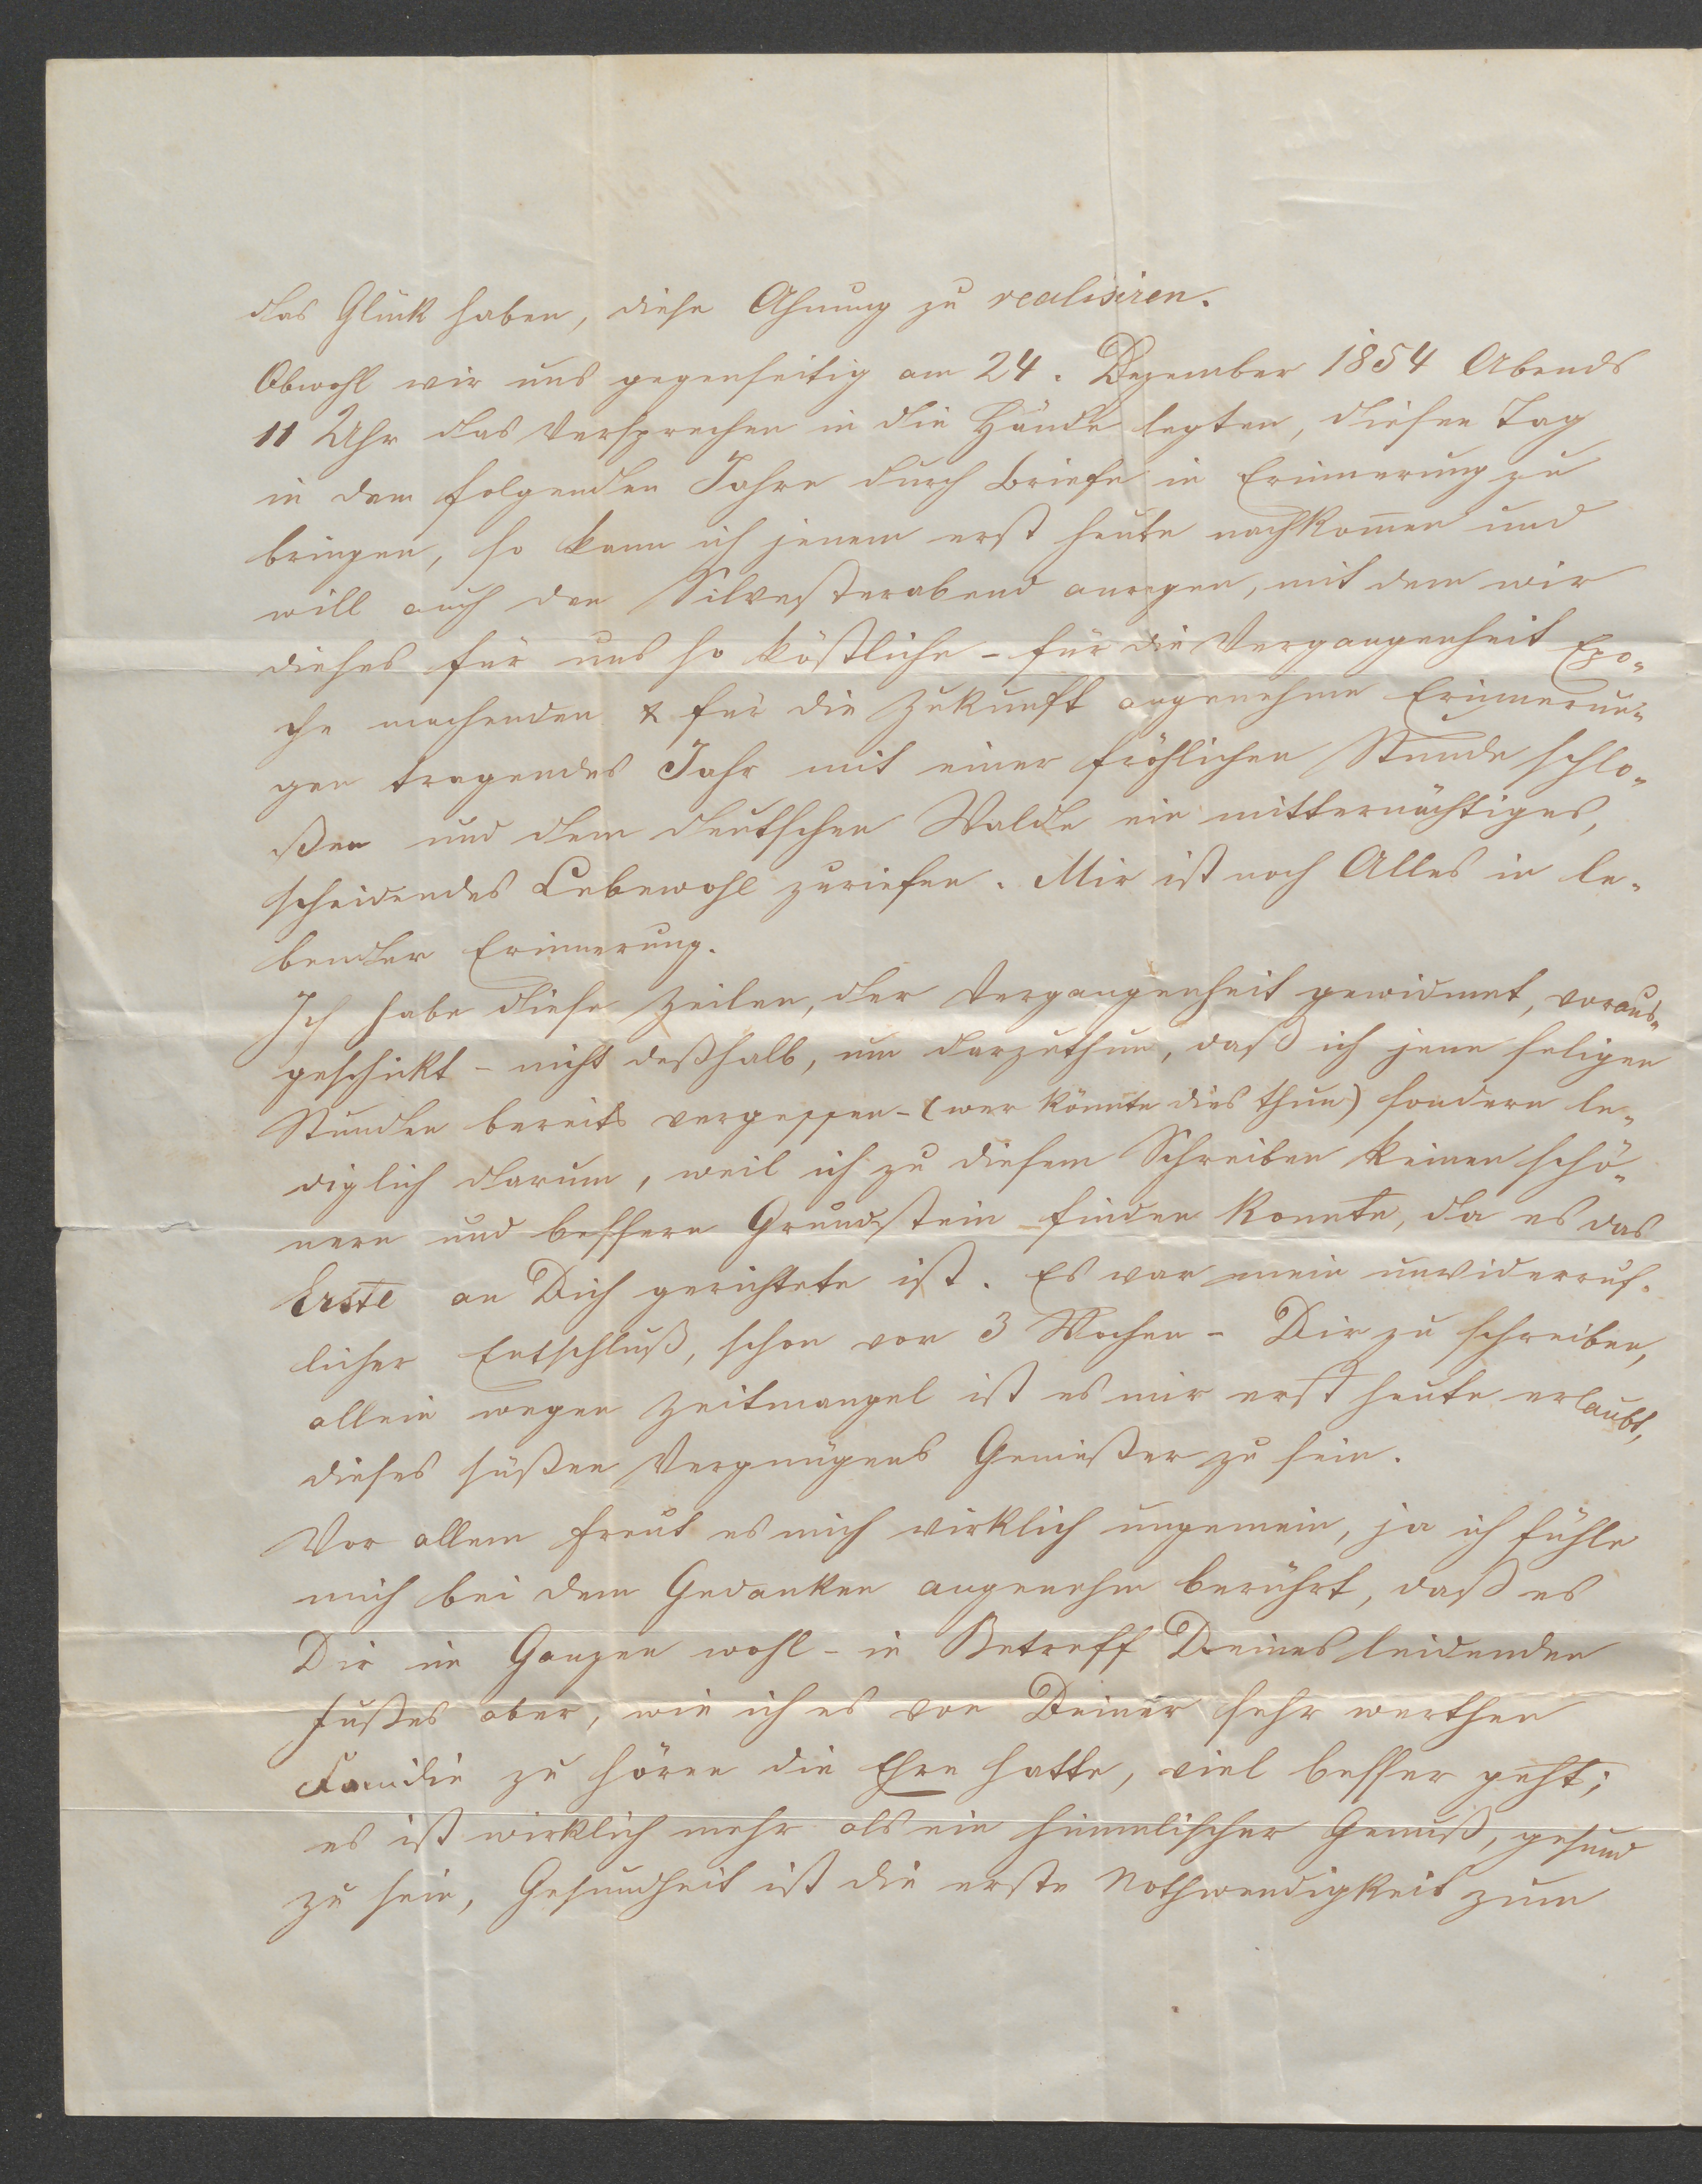 das Glück haben, diese Ahnung zu realisiren.
Obwohl wir uns gegenseitig am 24. Dezember 1854 Abends
11 Uhr das Versprechen in die Hände legten, diesen Tag
in dem folgenden Jahre durch Briefe in Erinnerung zu
bringen, so kann ich jenem erst heute nachkom̅en und
will auch den Silvesterabend anregen, mit dem wir
dieses für uns so köstliche - für die Vergangenheit Epo-
che machenden & für die Zukunft angenehme Erinnerun-
gen tragendes Jahr mit einer fröhlichen Stunde schlo-
ßen und dem deutschen Walde ein mitternächtiges,
scheidendes Lebewohl zuriefen. Mir ist noch Alles in le-
bender Erinnerung.
Ich habe diese Zeilen, der Vergangenheit gewidmet, voraus-
geschickt - nicht deßhalb, um darzuthun, daß ich jene seligen
Stunden bereits vergessen - (wer könnte dies thun) sondern le-
diglich darum, weil ich zu diesem Schreiben keinen schö-
nern und bessern Grundstein finden konnte, da es das
Erste an Dich gerichtete ist. Es war mein unwiderruf-
licher Entschluß, schon vor 3 Wochen - Dir zu schreiben,
allein wegen Zeitmangel ist es mir erst heute erlaubt,
dieses süßen Vergnügens Genießer zu sein.
Vor allem freut es mich wirklich ungemein, ja ich fühle
mich bei dem Gedanken angenehm berührt, daß es
Dir im Ganzen wohl - in Betreff Deines leidenden
Fußes aber, wie ich es von Deiner sehr werthen
Familie zu hören die Ehre hatte, viel besser geht;
es ist wirklich mehr als ein himmlischer Genuß, gesund
zu sein, Gesundheit ist die erste Nothwendigkeit zum